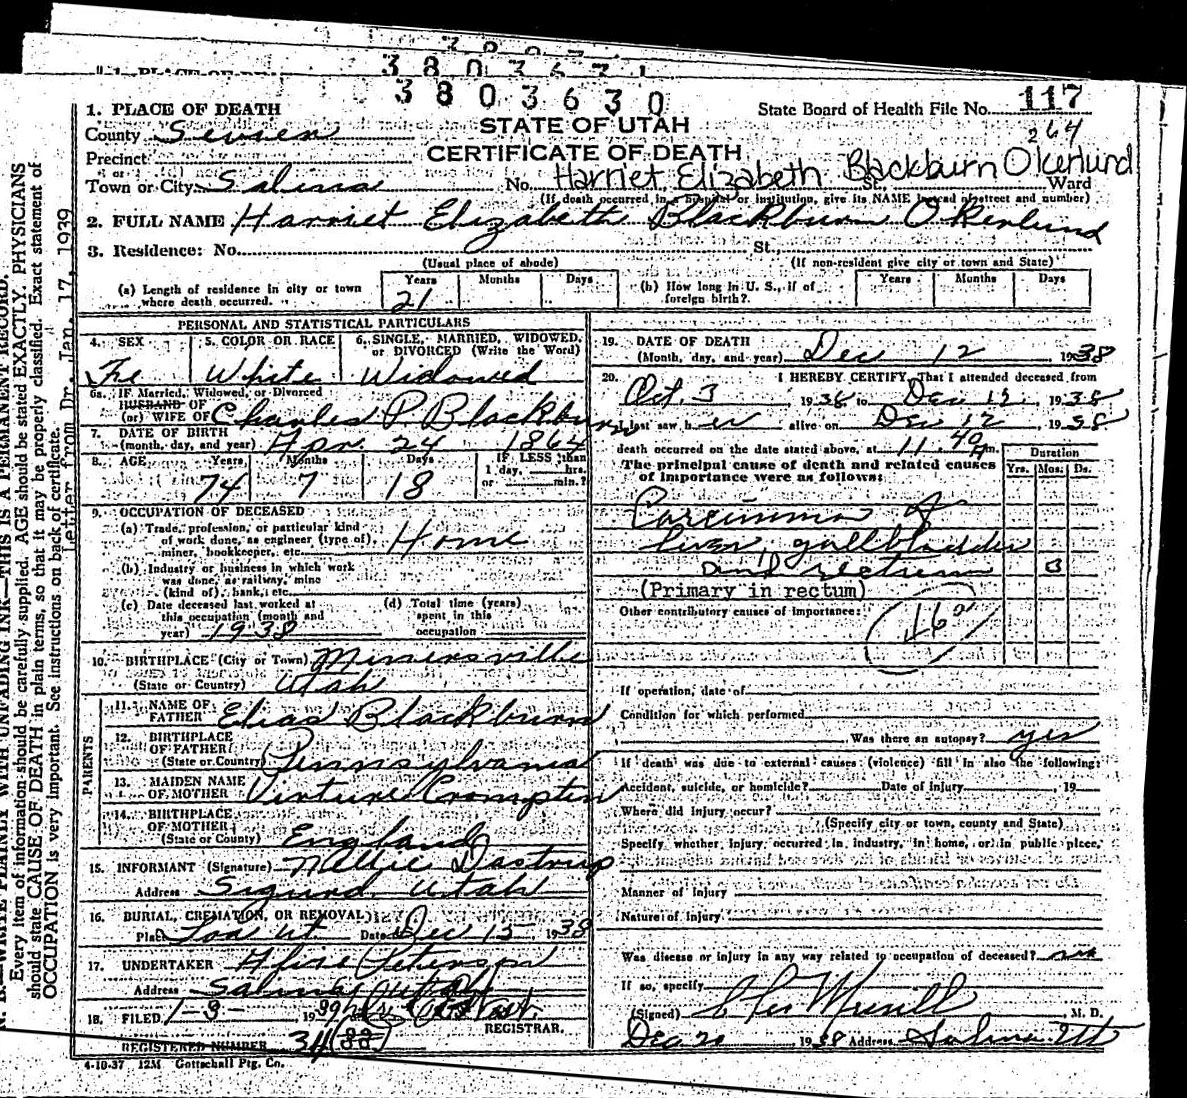 3803671
3803630
117
1. PLACE OF DEATH
State Board of Health File No.
264
County Sevier
STATE OF UTAH
Precinct
CERTIFICATE OF DEATH
or
Town or City Salina No. Harriet Elizabeth Blackburn Okerlund St. Ward
(If death occurred in a hospital or institution, give its NAME instead of street and number)
2. FULL NAME Harriet Elizabeth Blackburn Okerlund
3. Residence: No. St.
(Usual place of abode) (If non-resident give city or town and State)
(a) Length of residence in city or town where death occurred. Years 21 Months Days
(b) How long in U. S., if of foreign birth? Years Months Days
PERSONAL AND STATISTICAL PARTICULARS
4. SEX Fe
5. COLOR OR RACE White
6. SINGLE, MARRIED, WIDOWED, or DIVORCED (Write the Word) Widowed
6a. IF Married, Widowed, or Divorced
HUSBAND OF
(or) WIFE OF Charles P Blackburn
7. DATE OF BIRTH
(month, day, and year) Apr. 24 1864
8. AGE Years 74 Months 7 Days 18 IF LESS than 1 day, hrs. or min.?
9. OCCUPATION OF DECEASED
(a) Trade, profession, or particular kind
of work done, as engineer (type of), Home
miner, bookkeeper, etc.
(b) Industry or business in which work
was done, as railway, mine
(kind of), bank, etc.
(c) Date deceased last worked at
this occupation (month and
year) 1938
(d) Total time (years)
spent in this
occupation
10. BIRTHPLACE (City or Town) Minersville
(State or Country) Utah
PARENTS
11. NAME OF
FATHER Elias Blackburn
12. BIRTHPLACE
OF FATHER
(State or Country) Pennsylvania
13. MAIDEN NAME
OF MOTHER Virture Crompton
14. BIRTHPLACE
OF MOTHER
(State or County) England
15. INFORMANT (Signature) Nellie Dastrup
Address Sigurd Utah
16. BURIAL, CREMATION, OR REMOVAL
Place Loa Ut Date Dec 15 1938
17. UNDERTAKER Peterson
Address Salina Utah
18. FILED 1-3- 1939
REGISTRAR.
REGISTERED NUMBER 34 (88)
4-10-37 12M Gottschall Ptg. Co.
19. DATE OF DEATH
(Month, day, and year) Dec 12 1938
20. I HEREBY CERTIFY, That I attended deceased from
Oct. 3 1938 to Dec 12, 1938
I last saw her alive on Dec 12 1938
death occurred on the date stated above, at 11:40 m.
The principal cause of death and related causes
of importance were as follows:
Duration
Yrs. Mos. Ds.
Carcinoma of
liver, gallbladder
and rectum
(Primary in rectum)
Other contributory causes of importance:
46
If operation, date of
Condition for which performed
Was there an autopsy? yes
If death was due to external causes (violence) fill in also the following:
Accident, suicide, or homicide? Date of injury , 19
Where did injury occur?
(Specify city or town, county and State)
Specify whether injury occurred in industry, in home, or in public place.
Manner of Injury
Nature of Injury
Was disease or injury in any way related to occupation of deceased?
If so, specify
(Signed) Merrill, M. D.
Dec 20 1938 Address Salina Ut
N. B.—WRITE PLAINLY WITH UNFADING INK—THIS IS A PERMANENT RECORD.
Every item of information should be carefully supplied. AGE should be stated EXACTLY. PHYSICIANS
should state CAUSE OF DEATH in plain terms, so that it may be properly classified. Exact statement of
OCCUPATION is very important. See instructions on back of certificate.
Letter from Dr. Jan. 17, 1939